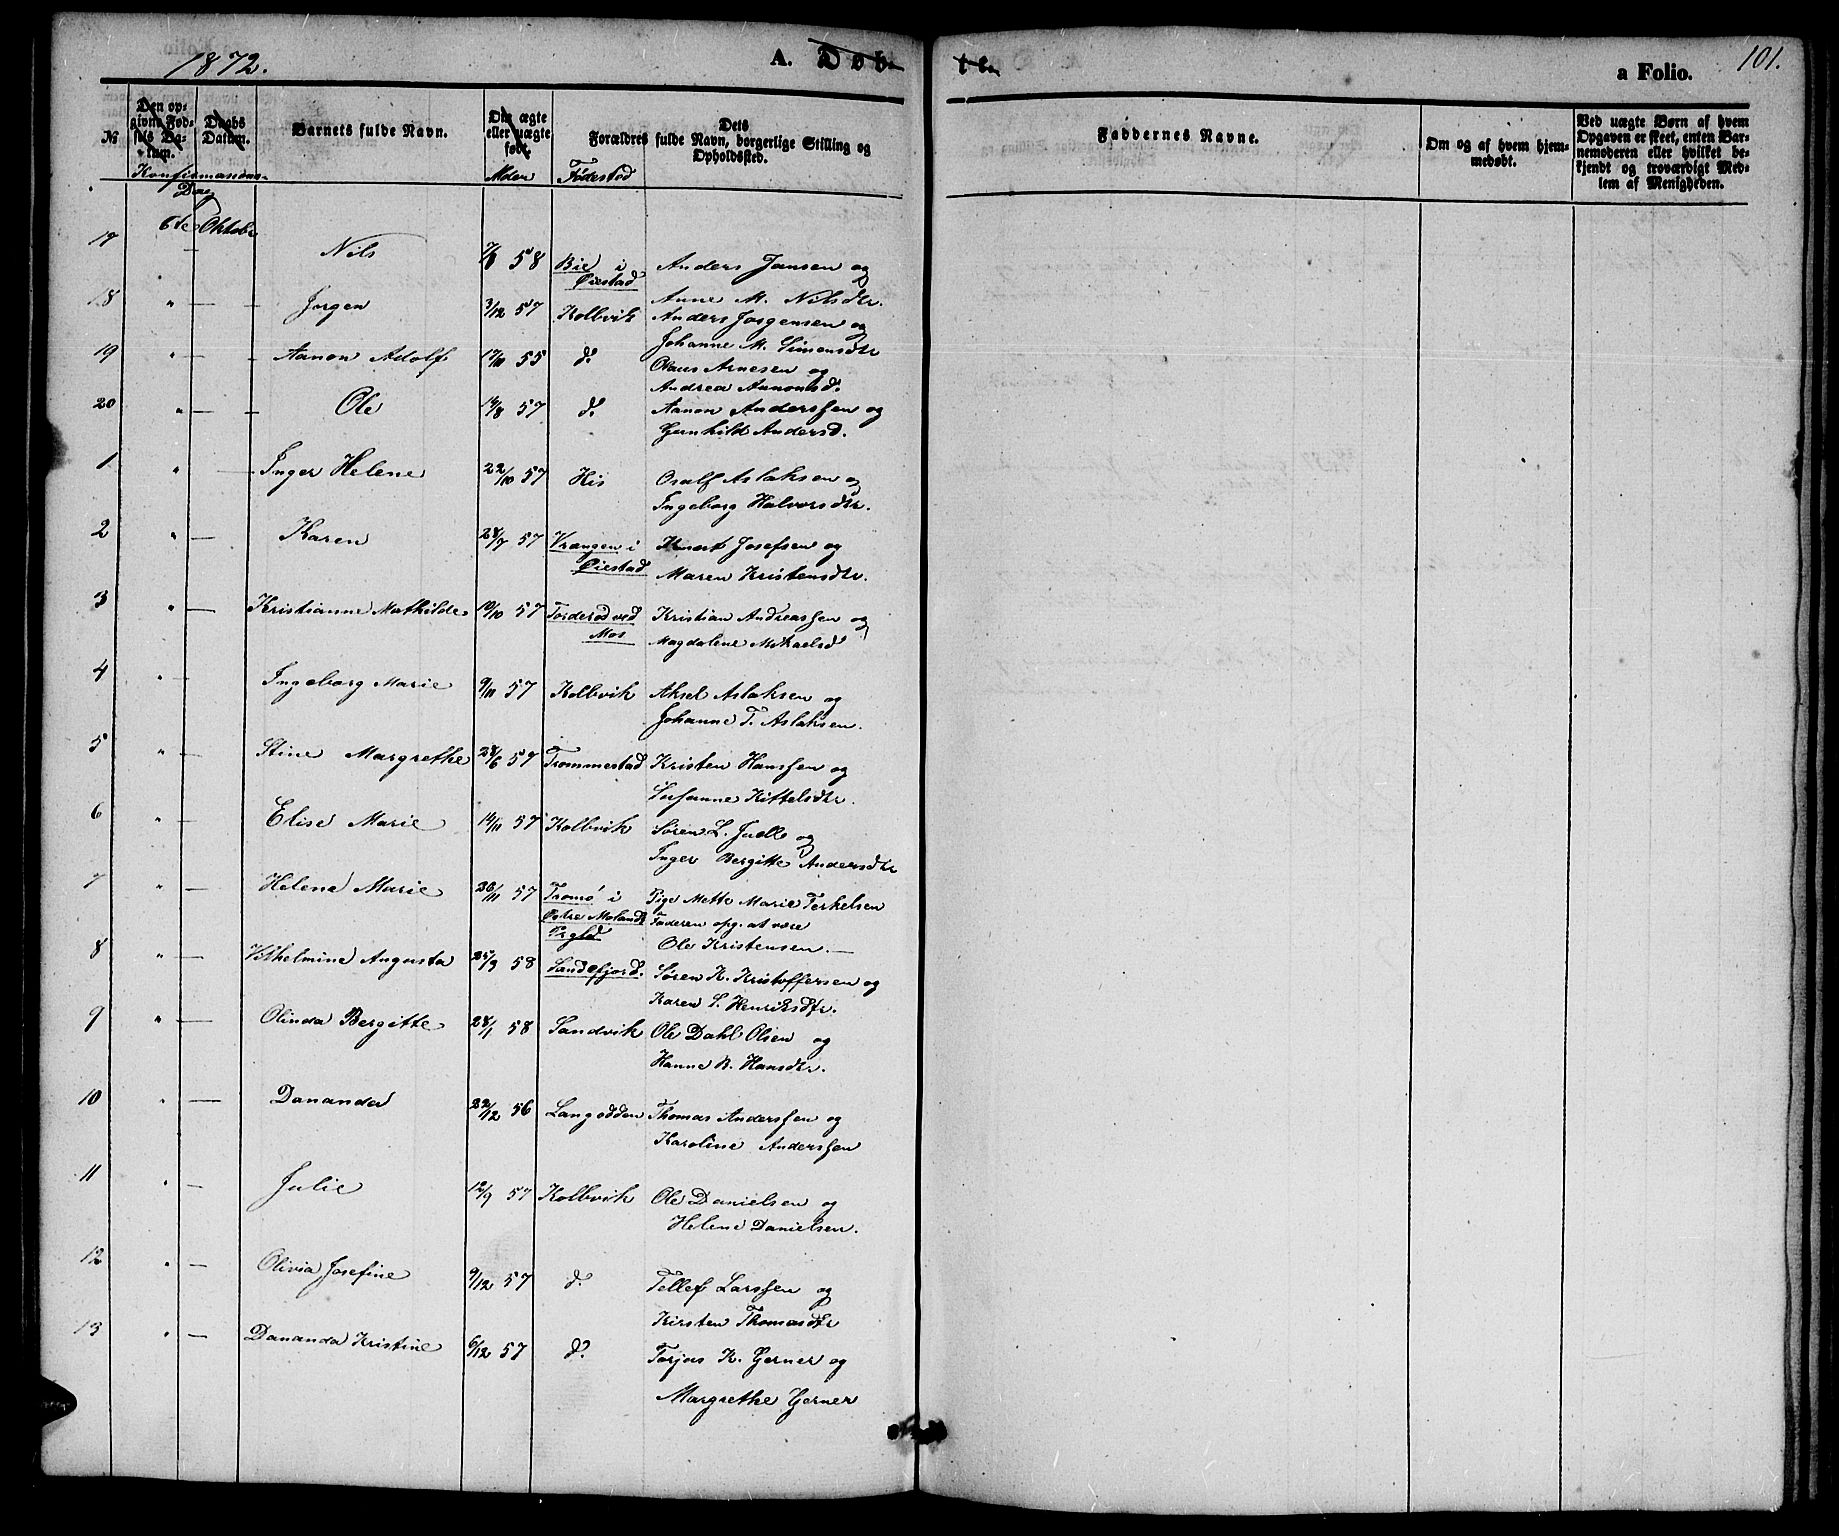 1872.
A. Døb
te
101.
a Folio.
№
Den opgivne Fødsels Datum.
Daabs Datum.
Barnets fulde Navn.
Om ægte eller uægte født.
Dets
Forældres fulde Navn, borgerlige Stilling og
Opholdssted.
Faddernes Navne.
Om og af hvem hjemmedøbt.
Ved uægte Børn af hvem
Opgaven er skeet, enten Barnemoderen eller hvilket bekjendt og troværdigt Medlem af Menigheden.
Konfirmasions-
Dag
Alder
Fødestad
6te Oktobr
17 Nils 58 Bie i Anders Jansen og
Øiestad Anne M. Nilsdtr.
18 " — Jørgen 3/12 57 Kolbvik Anders Jørgensen og
Johanne M. Simensdtr
19 " — Aanon Adolf 17/11 55 do. Olaus Arnesen og
Andrea Aanonsd.
20 " — Ole 57 do. Aanon Anderssen og
Gunhild Andersd.
1 " — Inger Helene 22/10 57 His Osulf Aslaksen og
Ingeborg Halvorsdtr.
2 " — Karen 28/7 57 Vrængen i Josefsen og
Øiestad Maren Kristensdtr.
3 " — Kristianne Mathilde 10/10 57 Torderød ved Kristian Andreassen og
Mos Magdalene Mikaelsd
4 " — Ingeborg Marie 9/11 57 Kolbvik Aksel Aslaksen og
Johanne T. Aslaksen.
5 " — Stine Margrethe 28/6 57 Trommestad Kristen Hanssen og
Susanne Kittelsdtr.
6 " — Elise Marie 14/11 57 Kolbvik Søren L. Juell og
Inger Bergitte Andersdtr
7 " — Helene Marie 28/11 57 Tromø i Pige Mette Marie Terkelsen
Østre Molands Faderen opg. at være
Prgld Ole Kristensen. —
8 " — Vilhelmine Augusta 25/3 58 Sandefjord. Søren K. Kristoffersen og
Karen S. Henriksdtr.
9 " — Olinda Bergitte 28/1 58 Sandvik Ole Dahl Olsen og
Hanne B. Hansdtr.
10 " — Dananda 22/12 56 Langodden Thomas Anderssen og
Karoline Anderssen
11 " — Julie 12/9 57 Kolbvik Ole Danielsen og
Helene Danielsen.
12 " — Olivia Josefine 9/12 57 do. Tellef Larssen og
Kirsten Thomasdtr
13 " — Dananda Kristine 6/12 57 do. Torjus K. Gerner og
Margrethe Gerner